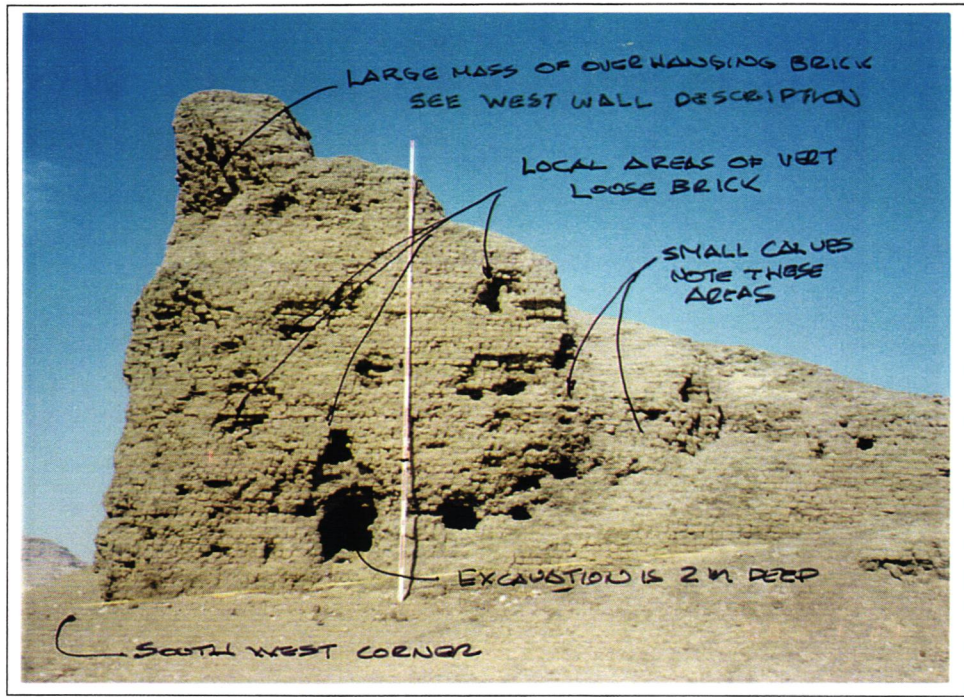 LARGE MASS OF OVERHANGING BRICK
SEE WEST WALL DESCRIPTION
LOCAL AREAS OF VERT
LOOSE BRICK
SMALL CALVES
NOTE THESE
AREAS
EXCAVATION IS 2 m DEEP
SOUTH WEST CORNER